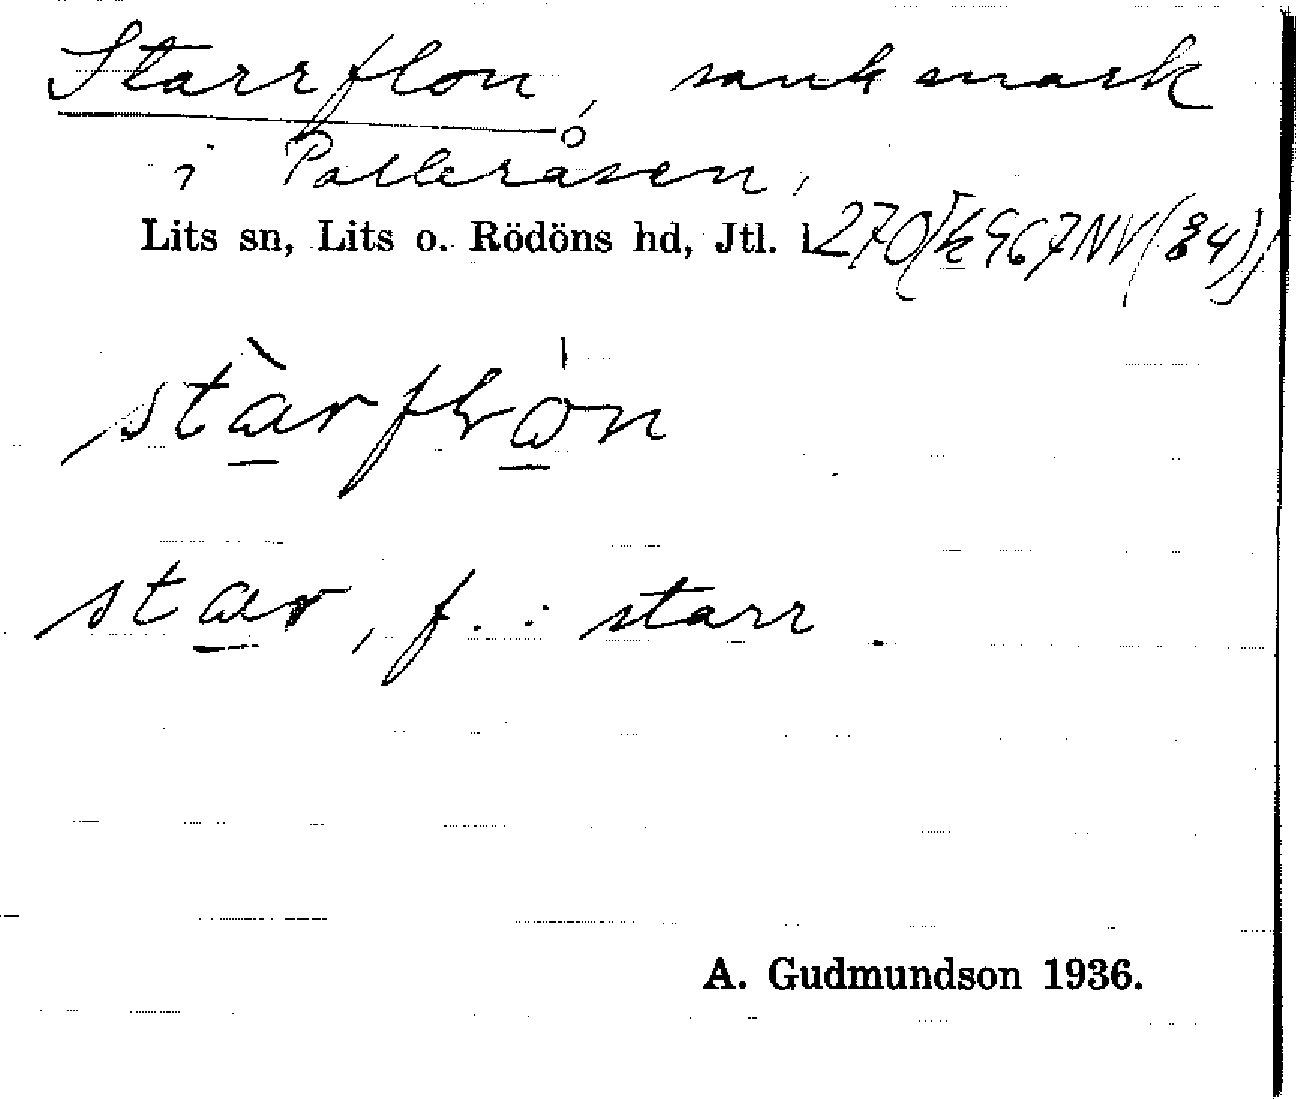 Starrflon, sank mark
i Palleråsen,
Lits sn, Lits o. Rödöns hd, Jtl. l.
stàrflón
star, f. : starr.
A. Gudmundson 1936.